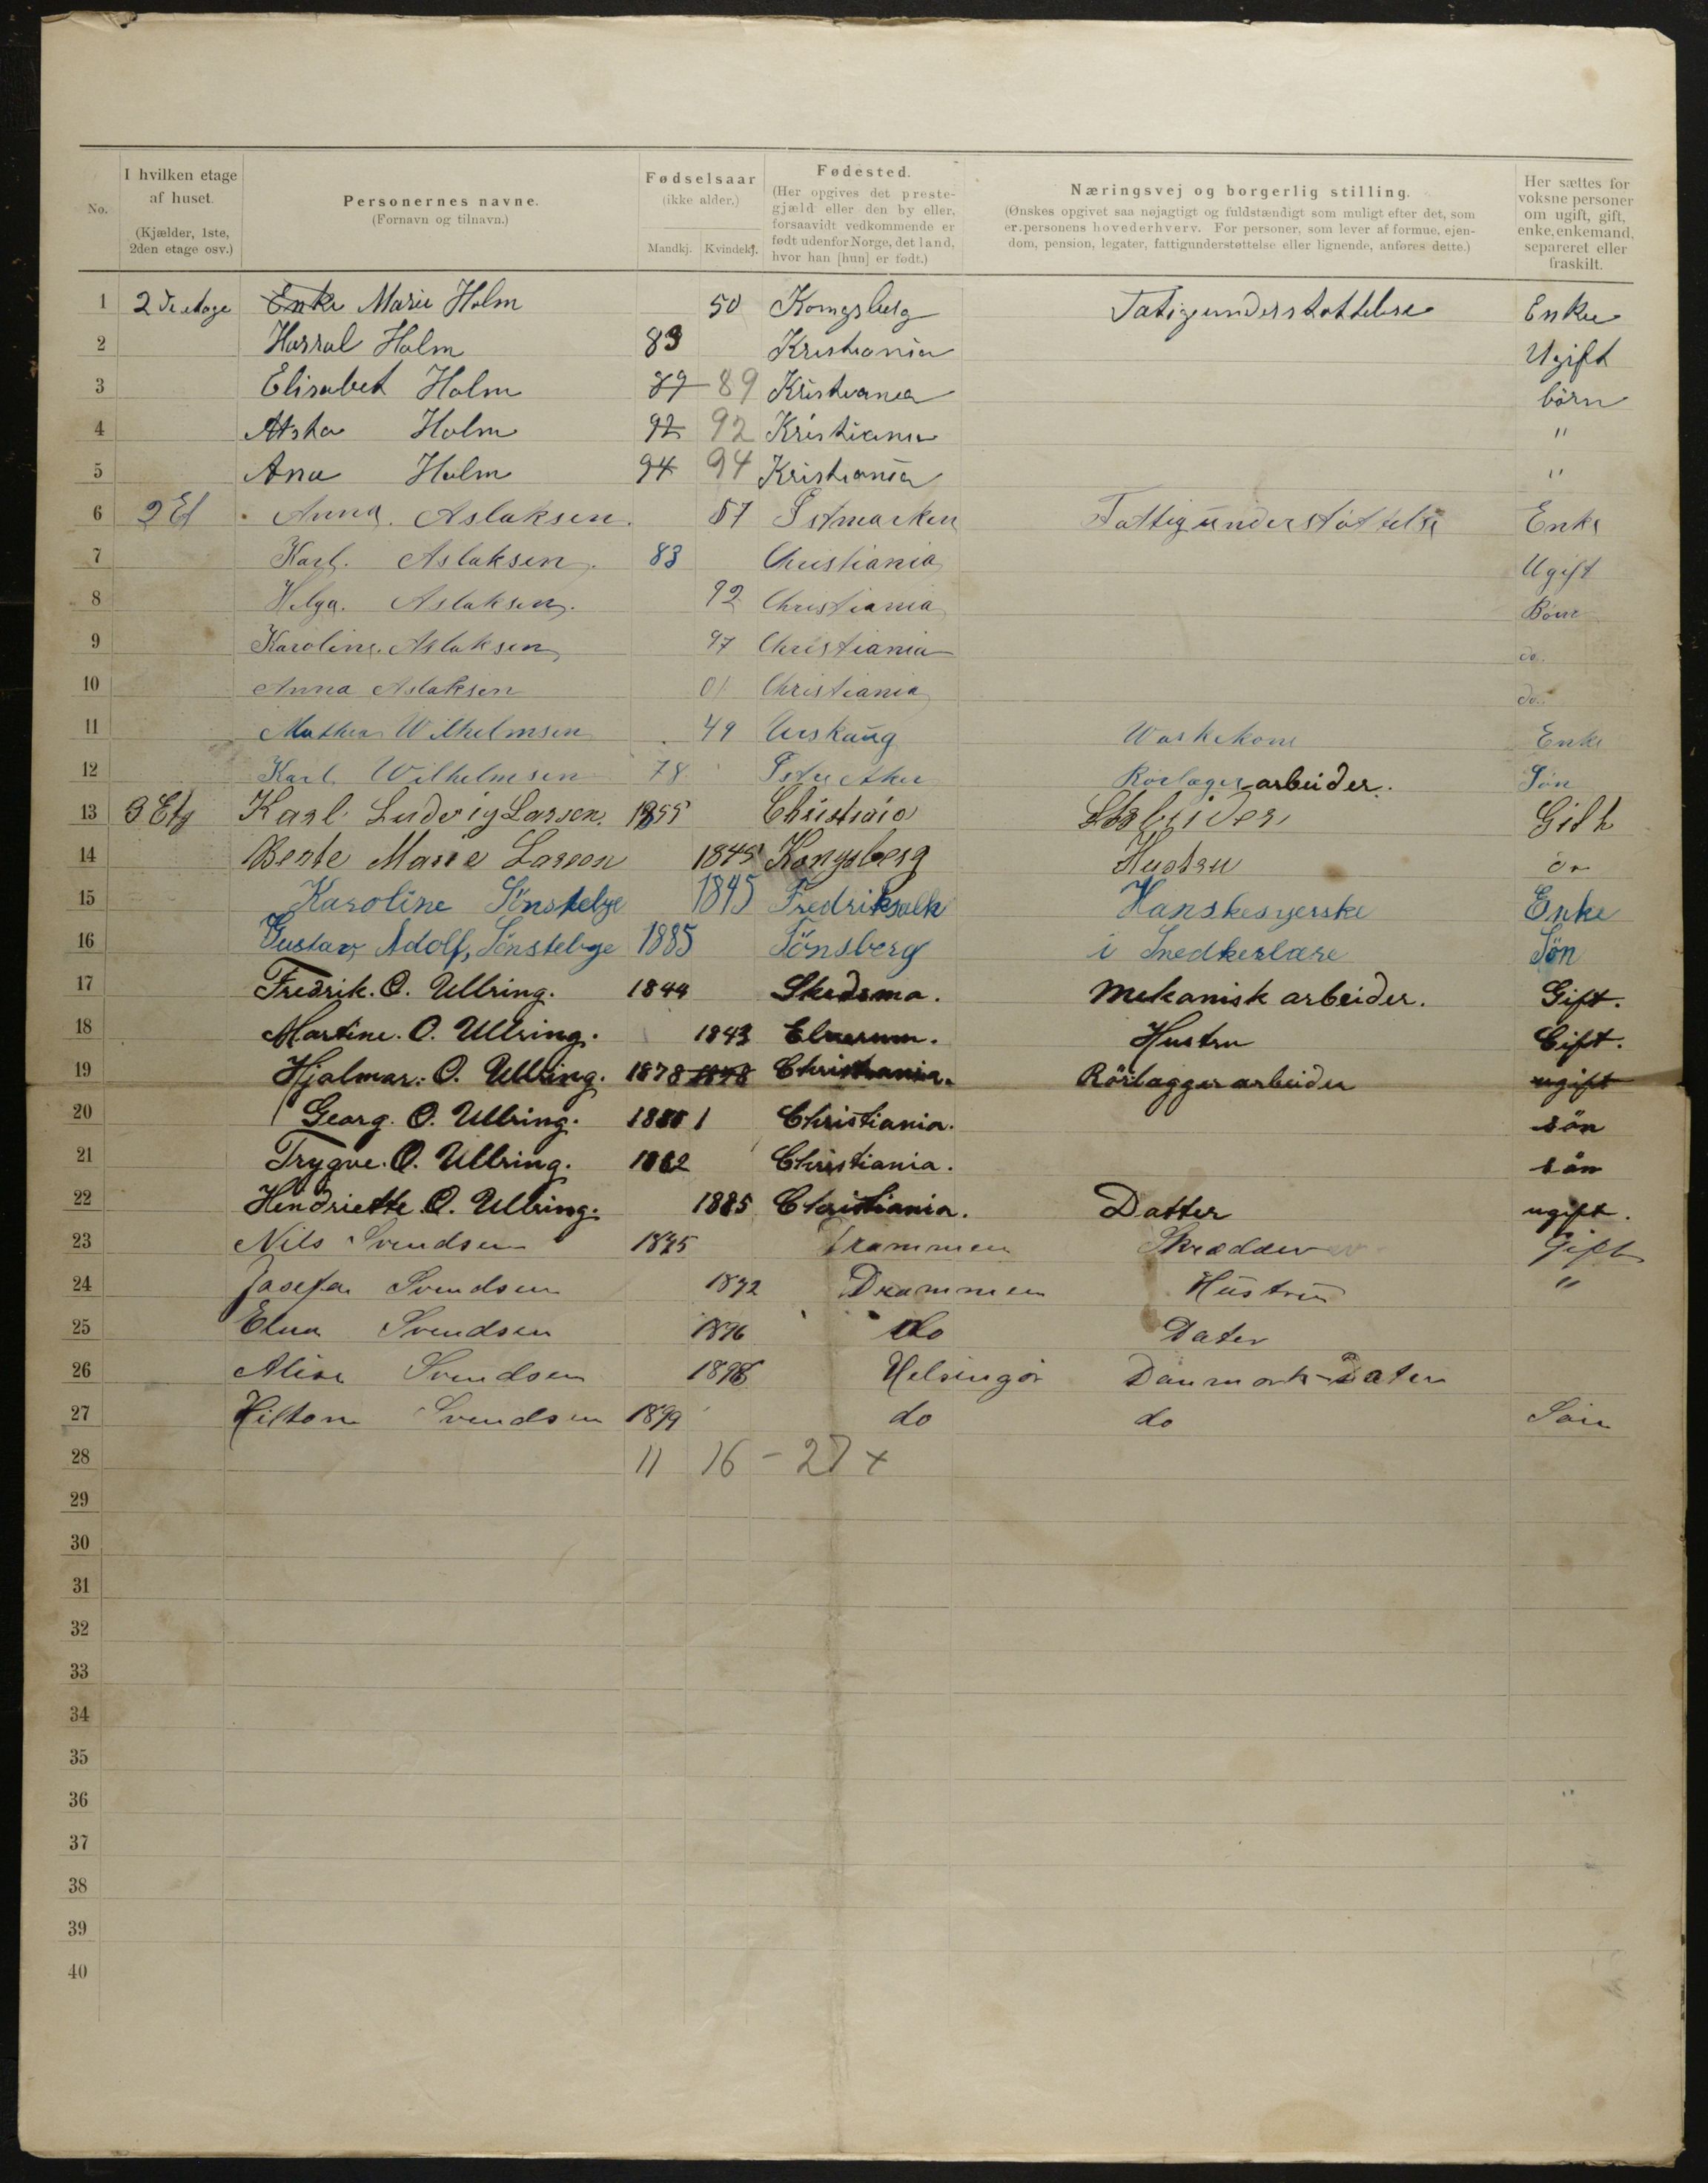 No.
I hvilken etage af huset. (Kjælder, 1ste, 2den etage osv.)
Personernes navne. (Fornavn og tilnavn.)
Fødselsaar (ikke alder.) Mandkj. Kvindekj.
Fødested. (Her opgives det prestegjæld eller den by eller, forsaavidt vedkommende er født udenfor Norge, det land, hvor han [hun] er født.)
Næringsvej og borgerlig stilling. (Ønskes opgivet saa nøjagtigt og fuldstændigt som muligt efter det, som er personens hovederhverv. For personer, som lever af formue, ejendom, pension, legater, fattigunderstøttelse eller lignende, anføres dette.)
Her sættes for voksne personer om ugift, gift, enke, enkemand, separeret eller fraskilt.
1 2de etage Enke Marie Holm 50 Kongsberg Fatigunderstøttelse Enke
2 Harral Holm 83 Kristiania Ugift
3 Elisabet Holm 89 89 Kristiania börn
4 Holm 92 92 Kristiania "
5 Ana Holm 94 94 Kristiania "
6 2 Et Anna Aslaksen 57 Fattigunderstøttelse Enke
7 Karl Aslaksen 83 Christiania Ugift
8 Helga Aslaksen 92 Christiania Börn
9 Karoline Aslaksen 97 Christiania do.
10 Anna Aslaksen 01 Christiania do.
11 Mathea Wilhelmsen 49 Urskaug Waskekone Enke
12 Karl Wilhelmsen 78 Aker Rörlæger arbeider. Sön
13 3 Etg Karl Ludvig Larsen 1855 Gift
14 Bente Marie Larson 1845 Kongsberg Hustru
15 Karoline Sönstebye 1845 Hanskesyerske Enke
16 Gustav Adolf Sönstebye 1885 Tönsberg i Snedkerlære Sön
17 Fredrik. O. Ullring. 1844 Skedsmo. Mekanisk arbeider. Gift.
18 Martine. O. Ullring. 1843 Elverum. Hustru Gift.
19 Hjalmar. O. Ullring. 1878 1878 Christiania. Rörlæggerarbeider ugift
20 Georg. O. Ullring. 1881 Christiania. sön
21 Trygve. O. Ullring. 1882 Christiania. sön
22 Hendriette. O. Ullring. 1885 Christiania. Datter ugift.
23 Nils Svendsen 1875 Drammen Skrædder Gift
24 Josefa Svendsen 1872 Drammen Hustru "
25 Elna Svendsen 1896 do Dater
26 Alise Svendsen 1898 Helsingør Danmark Dater
27 Hilton Svendsen 1899 do do Sön
28 11 16 - 27 +
29
30
31
32
33
34
35
36
37
38
39
40